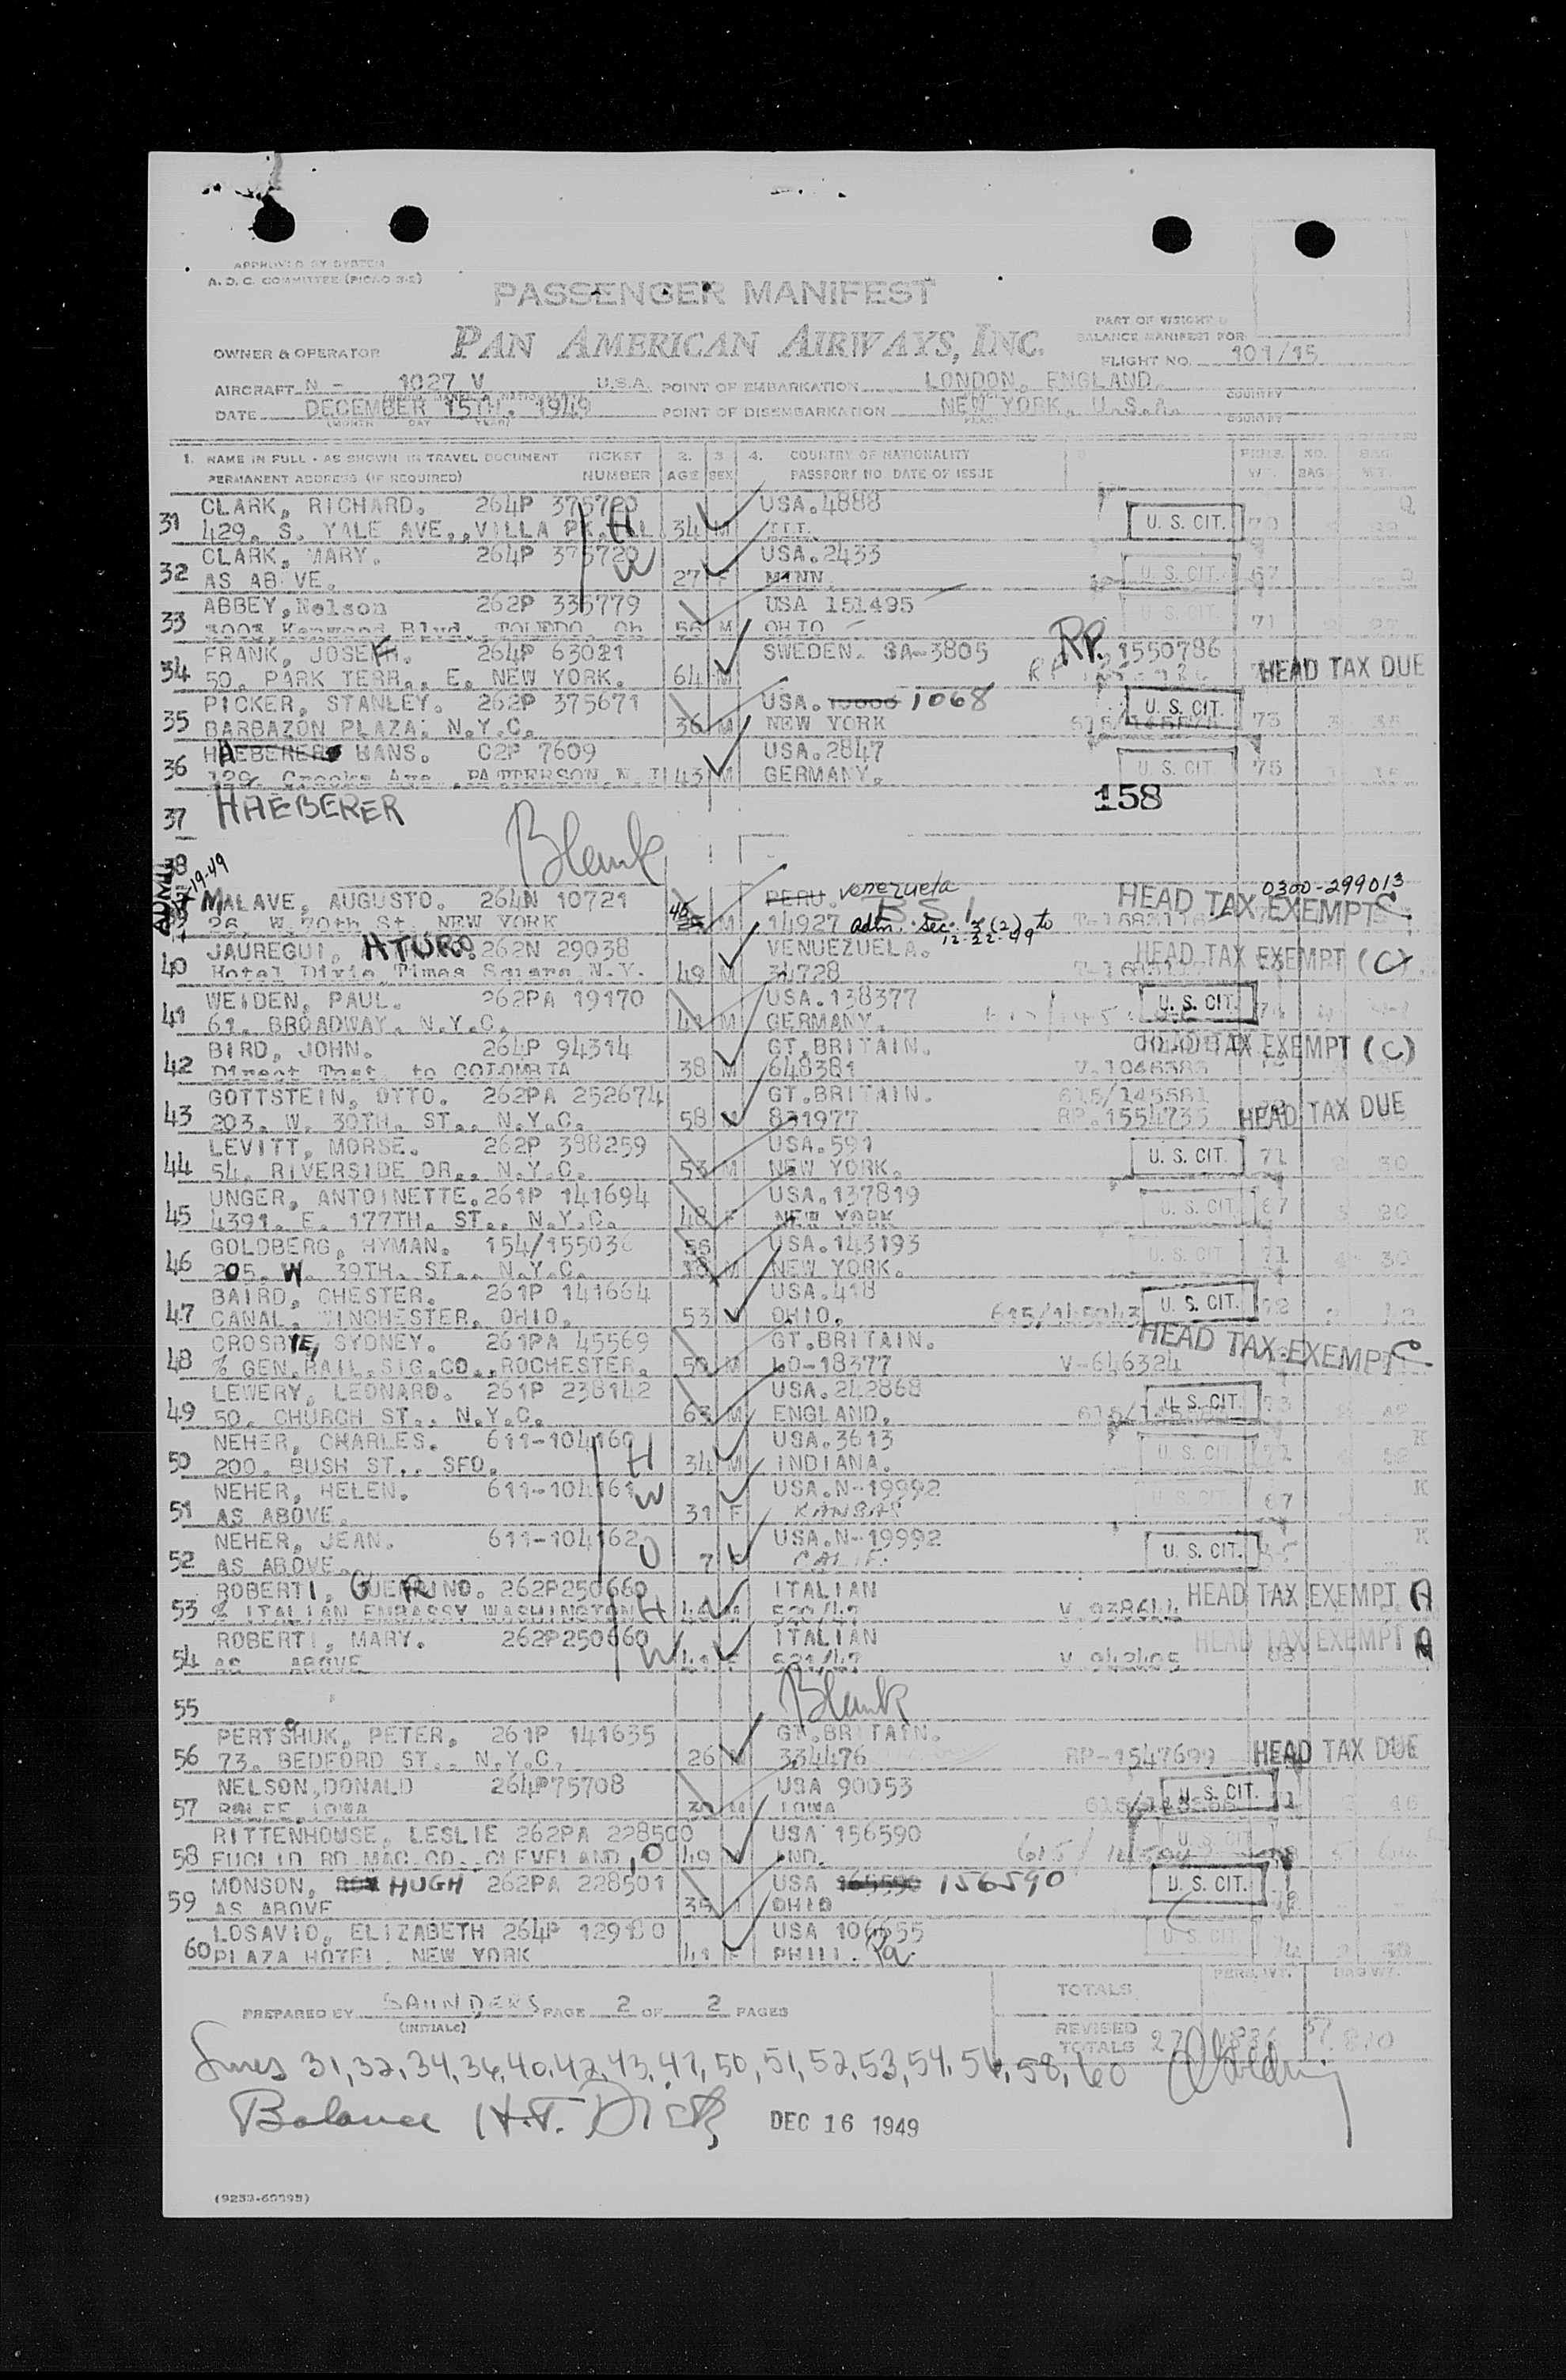 APPROVED BY SYSTEM
A. D. C. COMMITTEE (PICAO 3-2)
PASSENGER MANIFEST
PAN AMERICAN AIRWAYS, INC.
PART OF WEIGHT &
BALANCE MANIFEST FOR
OWNER & OPERATOR
FLIGHT NO. 101/15
AIRCRAFT N - 1027 V U.S.A. POINT OF EMBARKATION LONDON, ENGLAND. COUNTRY
DATE DECEMBER 15TH. 1949 POINT OF DISEMBARKATION NEW YORK, U.S.A. COUNTRY
(MONTH DAY YEAR)
1. NAME IN FULL - AS SHOWN IN TRAVEL DOCUMENT TICKET 2. 3. 4. COUNTRY OF NATIONALITY PERS. NO. BAG.
PERMANENT ADDRESS (IF REQUIRED) NUMBER AGE SEX PASSPORT NO DATE OF ISSUE WT. BAG. WT.
CLARK, RICHARD. 264P 375720 USA.4888 Q
31 429. S. YALE AVE.,VILLA PK. H 34 M ILL. U. S. CIT.
CLARK, MARY. 264P 375720 W USA.2433
32 AS AB VE. 27 F MINN. U. S. CIT. 67
ABBEY,Nelson 262P 335779 USA 151495
33 Kenwood Blvd. TOLEDO, Oh 56 M OHIO U. S. CIT. 71
FRANK, JOSEF. 264P 63021 SWEDEN. SA-3805 RP. 1550786
34 50. PARK TERR., E. NEW YORK. 64 M HEAD TAX DUE
PICKER, STANLEY. 262P 375671 USA. 1068 U. S. CIT.
35 BARBAZON PLAZA. N.Y.C. 36 M NEW YORK 75
HAEBERER HANS. C2P 7609 USA.2847
36 129. Crooks Ave .PATTERSON. N.J 43 M GERMANY. U. S. CIT. 75
37 HAEBERER 158
38 Blank
MALAVE, AUGUSTO. 264N 10721 PERU. Venezuela B S I HEAD TAX EXEMPT C 0300-299013
39 26. W.70th St. NEW YORK 45 M 14927 adm. sec. 3(2) to 12-22-49
JAUREGUI, ATURO. 262N 29038 VENUEZUELA. HEAD TAX EXEMPT (C)
40 Hotel Dixie, Times Square N.Y. 49 M 34728
WEIDEN, PAUL. 262PA 19170 USA.138377 U. S. CIT.
41 61. BROADWAY. N.Y.C. M GERMANY.
BIRD, JOHN. 264P 94314 GT.BRITAIN. HEAD TAX EXEMPT (C)
42 Direct Tnst. to COLOMBIA 38 M 648381
GOTTSTEIN, OTTO. 262PA 252674 GT.BRITAIN. 615/145581
43 203. W. 30TH. ST., N.Y.C. 58 M 831977 RP.1554735 HEAD TAX DUE
LEVITT, MORSE. 262P 398259 USA.591
44 54. RIVERSIDE DR., N.Y.C. 53 M NEW YORK. U. S. CIT. 71 30
UNGER, ANTOINETTE. 261P 141694 USA.137819
45 4391. E. 177TH. ST., N.Y.C. 48 F NEW YORK U. S. CIT. 67 20
GOLDBERG, HYMAN. 154/155036 56 USA.143193
46 205. W. 39TH. ST., N.Y.C. M NEW YORK. U. S. CIT. 71 30
BAIRD, CHESTER. 261P 141664 USA.418
47 CANAL. WINCHESTER, OHIO. 53 M OHIO. 615/145043 U. S. CIT.
CROSBIE, SYDNEY. 261PA 45569 GT.BRITAIN. HEAD TAX EXEMPT C
48 % GEN.RAIL.SIG.CO.,ROCHESTER. 50 M LO-18377 V-646324
LEWERY, LEONARD. 261P 238142 USA.242868
49 50. CHURCH ST., N.Y.C. 63 M ENGLAND. U. S. CIT.
NEHER, CHARLES. 611-104160 USA.3613 K
50 200. BUSH ST., SFO. H 34 M INDIANA. U. S. CIT.
NEHER, HELEN. 611-104161 W USA.N-19992 K
51 AS ABOVE. 31 F KANSAS U. S. CIT. 67
NEHER, JEAN. 611-104162 USA.N-19992 K
52 AS ABOVE. 7 CALIF. U. S. CIT.
ROBERTI, GUERRINO. 262P250660 ITALIAN
53 % ITALIAN EMBASSY WASHINGTON H 44 M 520/47 V 938644 HEAD TAX EXEMPT A
ROBERTI, MARY. 262P250660 ITALIAN HEAD TAX EXEMPT A
54 AS ABOVE W 41 F 521/47 V 942405
55 Blank
PERTSHUK, PETER. 261P 141635 GT.BR TAIN.
56 73. BEDFORD ST., N.Y.C. 26 M 334476 RP-1547699 HEAD TAX DUE
NELSON,DONALD 264P75708 USA 90053
57 IOWA M IOWA U. S. CIT.
RITTENHOUSE, LESLIE 262PA 228500 USA 156590
58 EUCLID RD MAC.CO.,CLEVELAND, O 49 IND. U. S. CIT.
MONSON, HUGH 262PA 228501 USA 156590
59 AS ABOVE 35 OHIO U. S. CIT.
LOSAVIO, ELIZABETH 264P 129180 USA 106655
60 PLAZA HOTEL. NEW YORK 41 F PHILL. Pa. U. S. CIT.
PREPARED BY SAUNDERS PAGE 2 OF 2 PAGES
(INITIALS)
TOTALS PERS. WT. BAG WT.
REVISED TOTALS 27 870
Lines 31, 32, 34, 36, 40, 42, 43, 47, 50, 51, 52, 53, 54, 56, 58, 60
Balance H.T.
DEC 16 1949